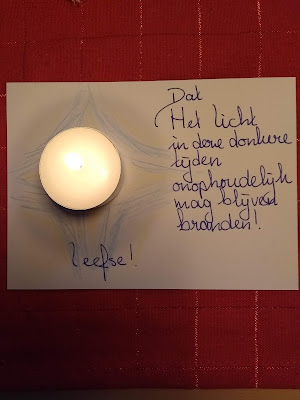 Dat
Het licht
in deze donkere
tijden
onophoudelijk
mag blijven
branden!
Leefse!